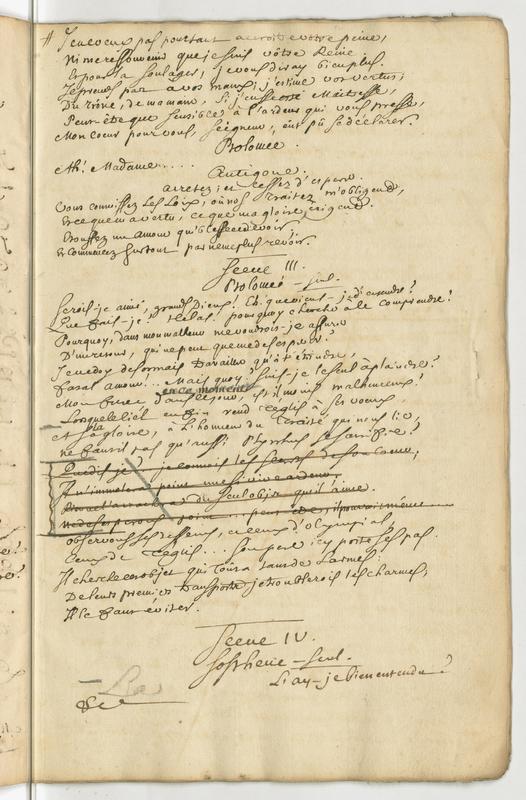 # Je ne veux pas pourtant accroitre votre peine,
Ni me ressouvenir que je suis vôtre Reine
Et pour la soulager, je vous diray bien plus.
Je prens part a vos maux; j'estime vos vertus;
Du trône, de ma main, si j'eusse esté Maitresse,
Peut-être que sensible à l'ardeur qui vous presse,
Mon coeur pour vous, seigneur, eût pû se déclarer.
Ptolomée.
Ah! Madame....
Antigone.
arretez; et cessez d'esperer.
Vous connoissez les Loix, où nos traitez m'obligent,
Et ce que ma vertu, ce que ma gloire exigent.
Etouffez un amour qu'blesse devoir;
Et commencez surtout par ne me plus revoir.
Scene III.
Ptolomée – seul.
Serois-je aimé, grands Dieux! Eh que viens-je d'entendre!
Que fais-je? Helas! pourquoy cherche à le comprendre!
Pourquoy, dans mon malheur me voudrois-je assurer
D'un, qui ne peut que me desesperer?
Je ne doy desormais travailler qu'à l'éteindre,
Fatal amour... Mais quoy, suis-je le seul à plaindre?
Mon frere dans en ce moment est il moins malheureux?
Lorsque le Ciel enfin rend à ses voeux,
Et sa la gloire, à l'honneur du Traité qui nous lie,
ne faut-il pas qu'aussi sacrifie?
Que dis-je? je connois les de son coeur,
peine une si vive ardeur
du seul objet qu'il aime.
point... peut même
observons ses desseins, ceux d'Olympias,
Ceux de... Son pere icy porte ses pas.
Il cherche objet qui les larmes;
De leurs premiers transports je troublerois les charmes;
Il le faut éviter.
Scene IV.
– seul.
L'ay-je bien entendu?